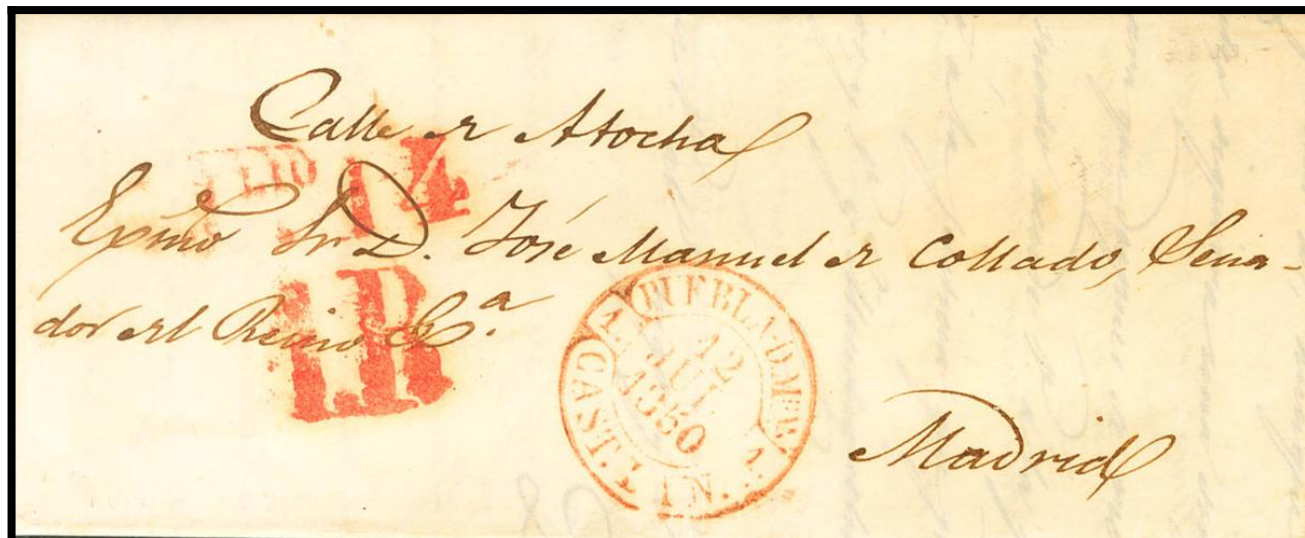 Calle de Atocha
JULIO 14
Exmo Sr. D. José Manuel de Collado, Sena-
dor del Reino &.ª
1R
PUEBLA-D-
12
JUL
1850
CAST. L
Madrid